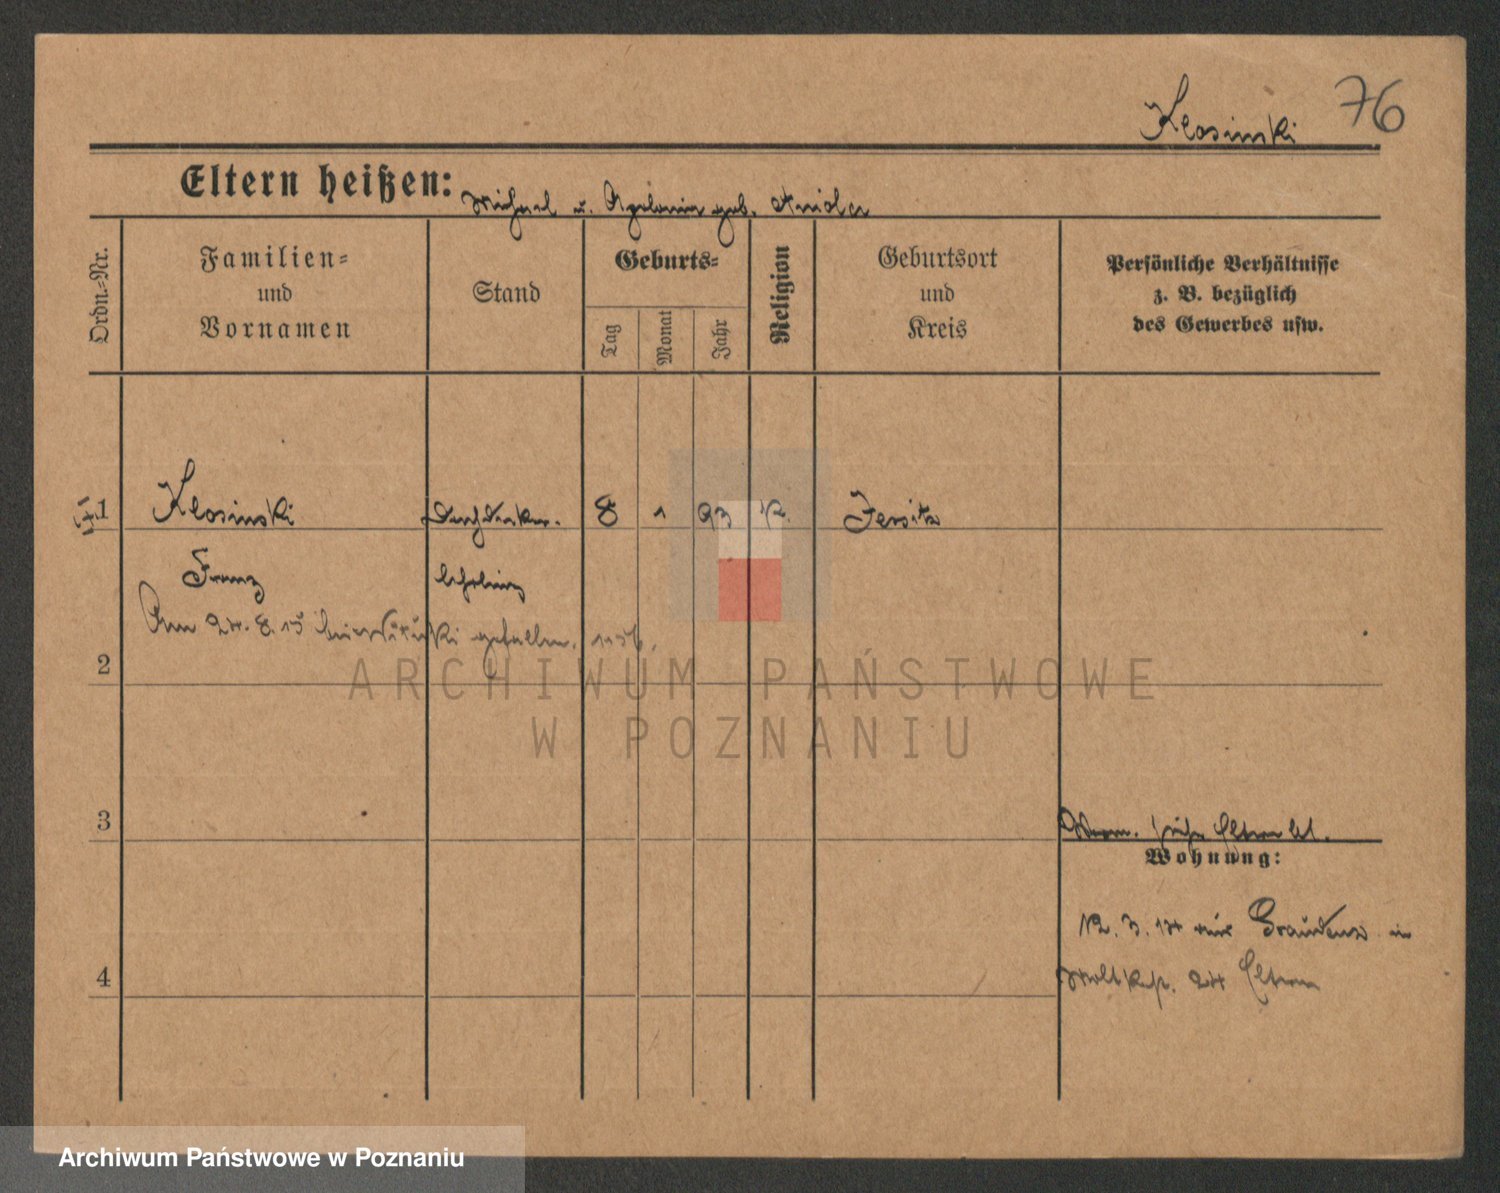 Klosinski 76
Eltern heißen: Michael u. Apolonia geb. Aniola
Ordn.=Nr.
Familien=
und
Vornamen
Stand
Geburts=
Tag
Monat
Jahr
Religion
Geburtsort
und
Kreis
Persönliche Verhältnisse
z. B. bezüglich
des Gewerbes usw.
1 Klosinski 8 1 93 k. Jersitz
Franz lehrling
Am 24.8.15 gefallen.
2
3
Wohnung:
3. 14 Graudenz in
4
24 Eltern
ARCHIWUM PAŃSTWOWE
W POZNANIU
Archiwum Państwowe w Poznaniu